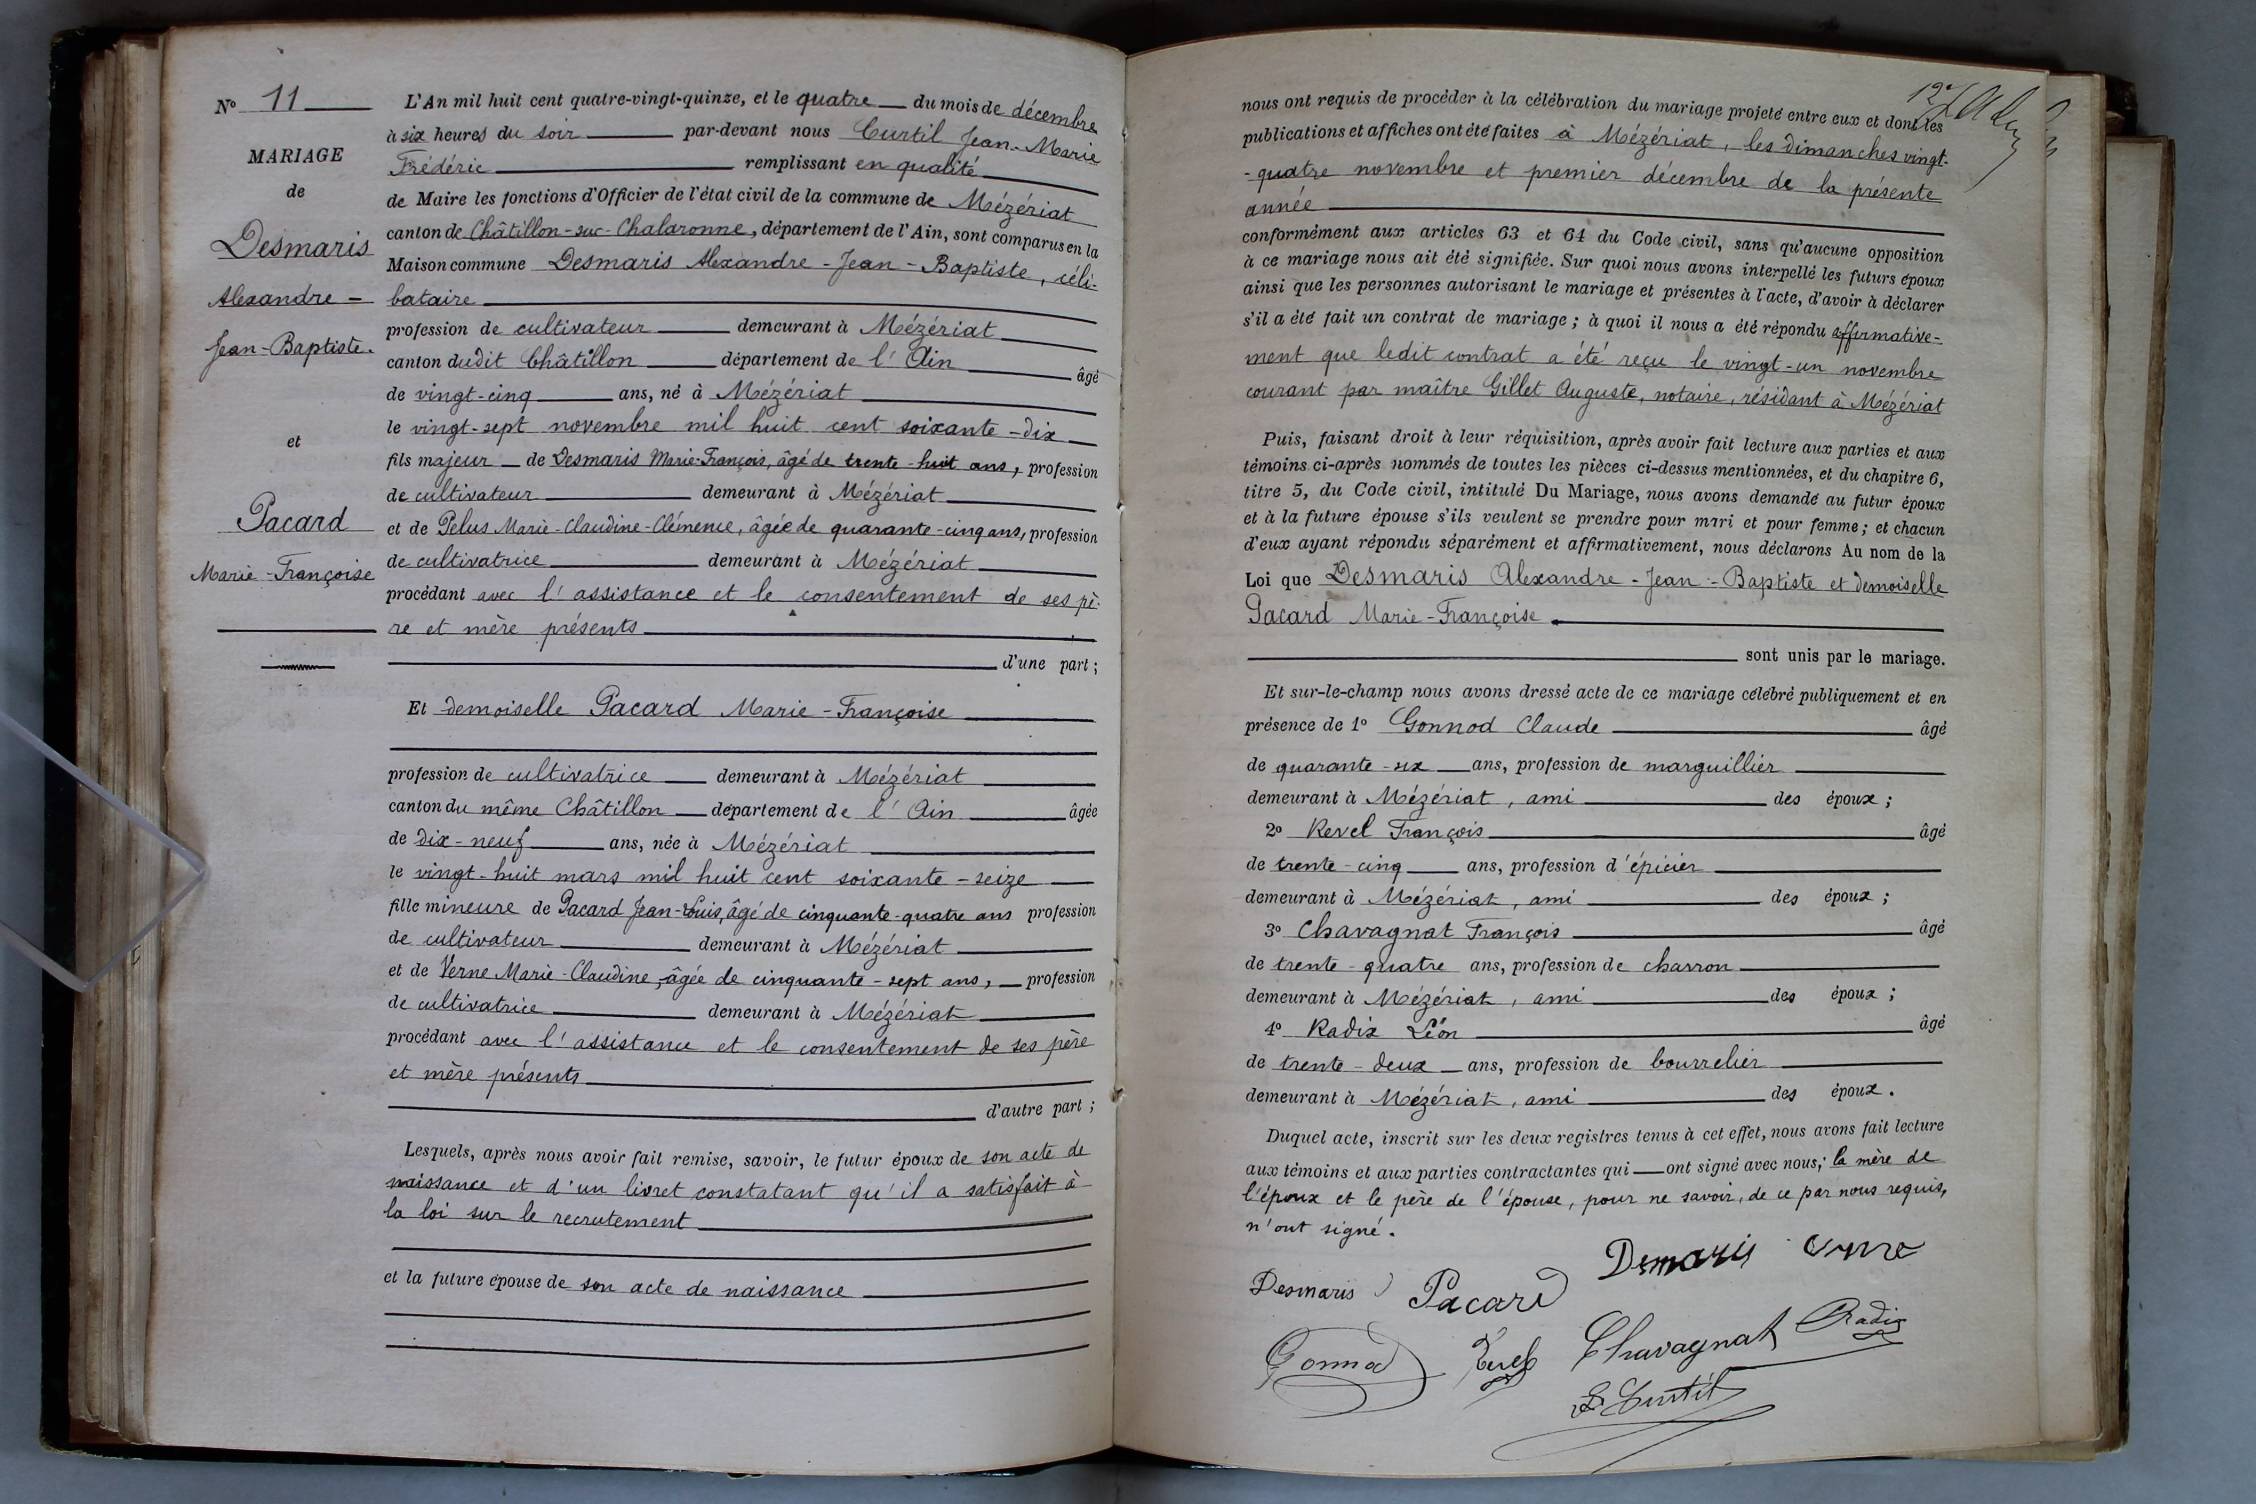 Nº 11
MARIAGE
de
Desmaris
Alexandre -
Jean-Baptiste.
et
Pacard
Marie-Françoise
L'An mil huit cent quatre-vingt-quinze, et le quatre du mois de décembre
à six heures du soir par-devant nous Curtil Jean-Marie
Frédéric remplissant en qualité
de Maire les fonctions d'Officier de l'état civil de la commune de Mézériat
canton de Châtillon-sur-Chalaronne, département de l'Ain, sont comparus en la
Maison commune Desmaris Alexandre-Jean-Baptiste, céli-
bataire
profession de cultivateur demeurant à Mézériat
canton dudit Châtillon département de l'Ain âgé
de vingt-cinq ans, né à Mézériat
le vingt-sept novembre mil huit cent soixante-dix
fils majeur de Desmaris Marie-François, âgé de trente-huit ans, profession
de cultivateur demeurant à Mézériat
et de Pelus Marie-Claudine-Clémence, âgée de quarante-cinq ans, profession
de cultivatrice demeurant à Mézériat
procédant avec l'assistance et le consentement de ses pè-
re et mère présents
d'une part ;
Et demoiselle Pacard Marie-Françoise
profession de cultivatrice demeurant à Mézériat
canton du même Châtillon département de l'Ain âgée
de dix-neuf ans, née à Mézériat
le vingt-huit mars mil huit cent soixante-seize
fille mineure de Pacard Jean-Louis, âgé de cinquante-quatre ans profession
de cultivateur demeurant à Mézériat
et de Verne Marie-Claudine, âgée de cinquante-sept ans, profession
de cultivatrice demeurant à Mézériat
procédant avec l'assistance et le consentement de ses père
et mère présents
d'autre part ;
Lesquels, après nous avoir fait remise, savoir, le futur époux de son acte de
naissance et d'un livret constatant qu'il a satisfait à
la loi sur le recrutement
et la future épouse de son acte de naissance
nous ont requis de procéder à la célébration du mariage projeté entre eux et dont les
publications et affiches ont été faites à Mézériat, les dimanches vingt-
-quatre novembre et premier décembre de la présente
année
conformément aux articles 63 et 64 du Code civil, sans qu'aucune opposition
à ce mariage nous ait été signifiée. Sur quoi nous avons interpellé les futurs époux
ainsi que les personnes autorisant le mariage et présentes à l'acte, d'avoir à déclarer
s'il a été fait un contrat de mariage ; à quoi il nous a été répondu affirmative-
ment que ledit contrat a été reçu le vingt-un novembre
courant par maître Gillet Auguste, notaire, résidant à Mézériat
Puis, faisant droit à leur réquisition, après avoir fait lecture aux parties et aux
témoins ci-après nommés de toutes les pièces ci-dessus mentionnées, et du chapitre 6,
titre 5, du Code civil, intitulé Du Mariage, nous avons demandé au futur époux
et à la future épouse s'ils veulent se prendre pour mari et pour femme ; et chacun
d'eux ayant répondu séparément et affirmativement, nous déclarons Au nom de la
Loi que Desmaris Alexandre-Jean-Baptiste et demoiselle
Pacard Marie-Françoise
sont unis par le mariage.
Et sur-le-champ nous avons dressé acte de ce mariage célébré publiquement et en
présence de 1º Gonnod Claude âgé
de quarante-six ans, profession de marguillier
demeurant à Mézériat, ami des époux ;
2º Revel François âgé
de trente-cinq ans, profession d'épicier
demeurant à Mézériat, ami des époux ;
3º Chavagnat François âgé
de trente-quatre ans, profession de charron
demeurant à Mézériat, ami des époux ;
4º Radix Léon âgé
de trente-deux ans, profession de bourrelier
demeurant à Mézériat, ami des époux.
Duquel acte, inscrit sur les deux registres tenus à cet effet, nous avons fait lecture
aux témoins et aux parties contractantes qui ont signé avec nous ; la mère de
l'époux et le père de l'épouse, pour ne savoir, de ce par nous requis,
n'ont signé.
Desmaris Pacard Demaris
Gonnod Revel Chavagnat Radix
Curtil